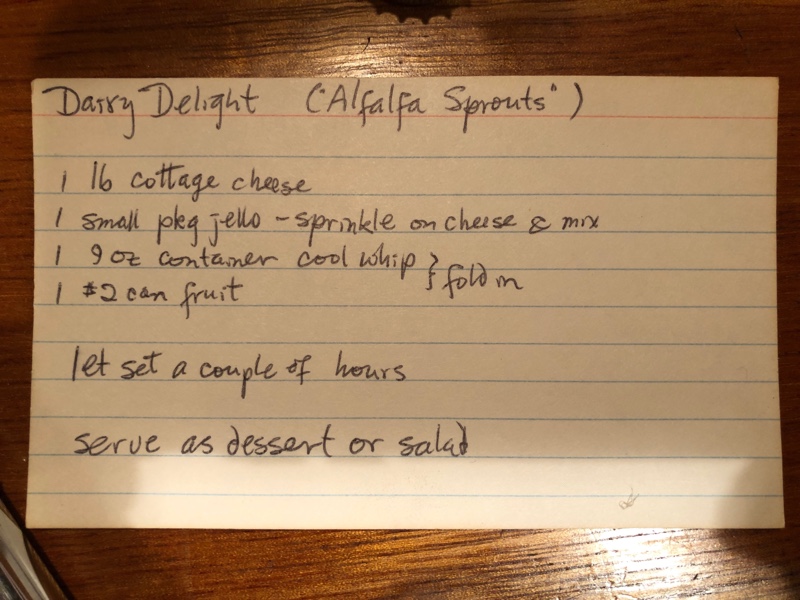 Dairy Delight ("Alfalfa Sprouts")
1 lb cottage cheese
1 small pkg jello - sprinkle on cheese & mix
1 9 oz container cool whip } fold in
1 #2 can fruit
let set a couple of hours
serve as dessert or salad